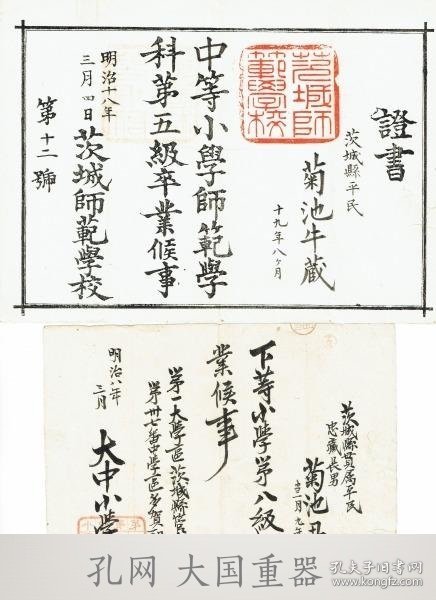 證書
茨城縣平民
菊池牛藏
十九年八ヶ月
茨城師範學校
中等小學師範學
科第五級卒業候事
明治十八年
三月四日
茨城師範學校
第十二號
茨城縣貫属平民
忠藏長男
菊池
下等小學第八級
業候事
第一大學區茨城縣管
第卅七番中学區多賀郡
明治八年
三月
大中小學
孔网 大国重器
孔夫子旧书网
www.kongfz.com